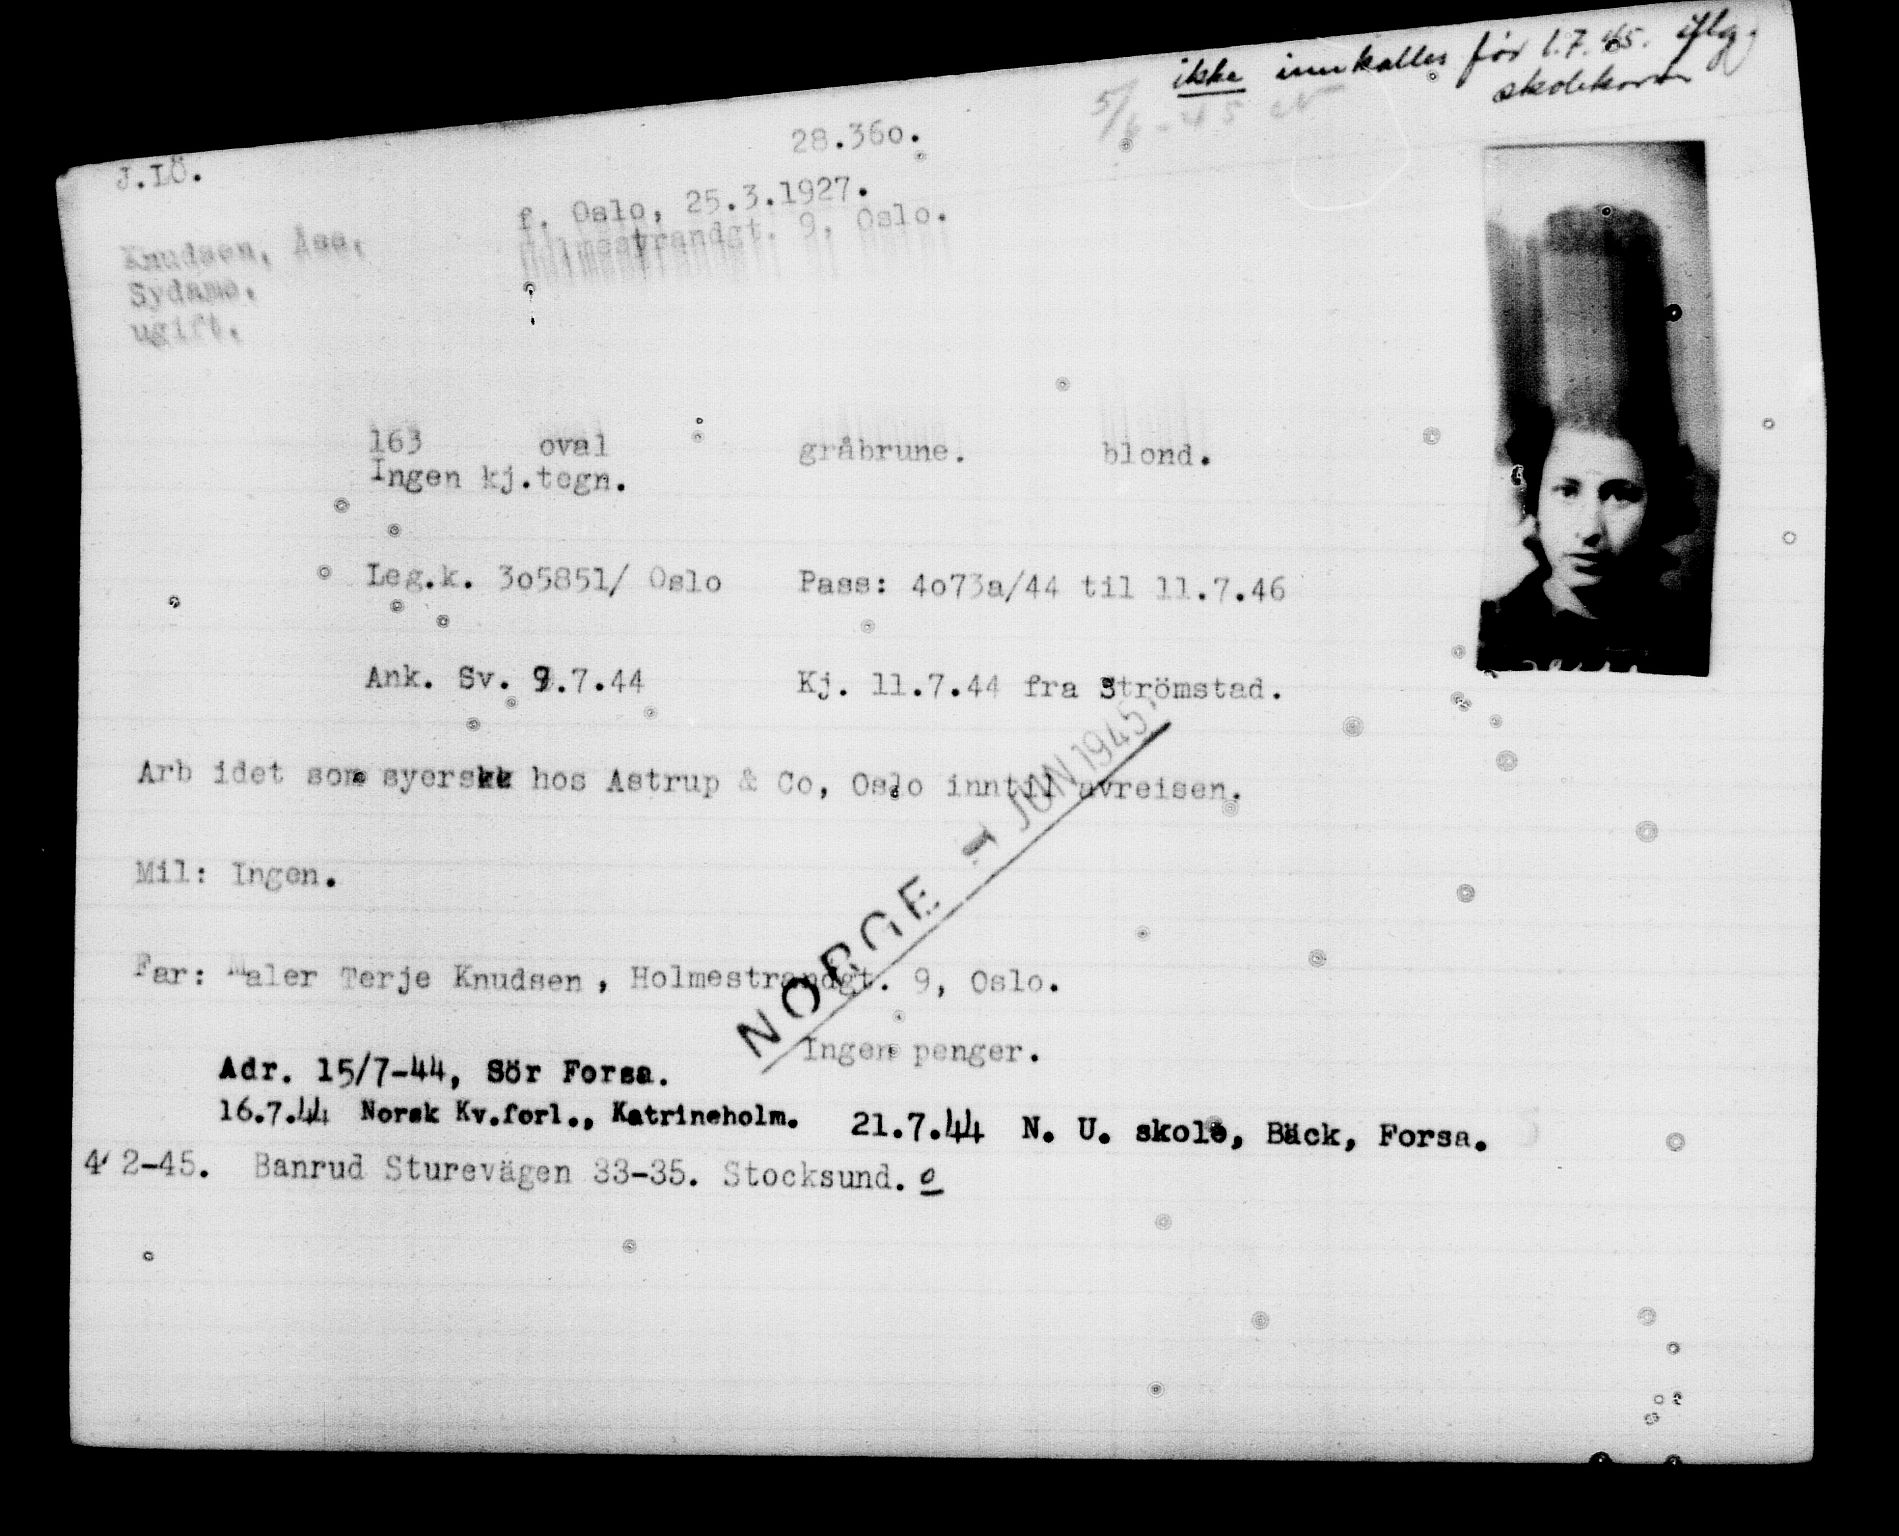 ikke innkalles før 1.7.45. iflg.
skolekontor
5/6-45
28.360.
J.LÖ.
f. Oslo, 25.3.1927.
Holmestrandgt. 9, Oslo.
Knudsen, Åse.
Sydame.
ugift.
163 oval gråbrune. blond.
Ingen kj.tegn.
Leg.k. 3o5851/ Oslo Pass: 4o73a/44 til 11.7.46
Ank. Sv. 9.7.44 Kj. 11.7.44 fra Strömstad.
Arb idet som syerske hos Astrup & Co, Oslo inntil avreisen.
Mil: Ingen.
Far: Maler Terje Knudsen, Holmestrandgt. 9, Oslo.
NORGE - 1 JUN 1945
Ingen penger.
Adr. 15/7-44, Sör Forsa.
16.7.44 Norsk Kv.forl., Katrineholm. 21.7.44 N. U. skole, Bäck, Forsa.
4/2-45. Banrud Sturevägen 33-35. Stocksund.